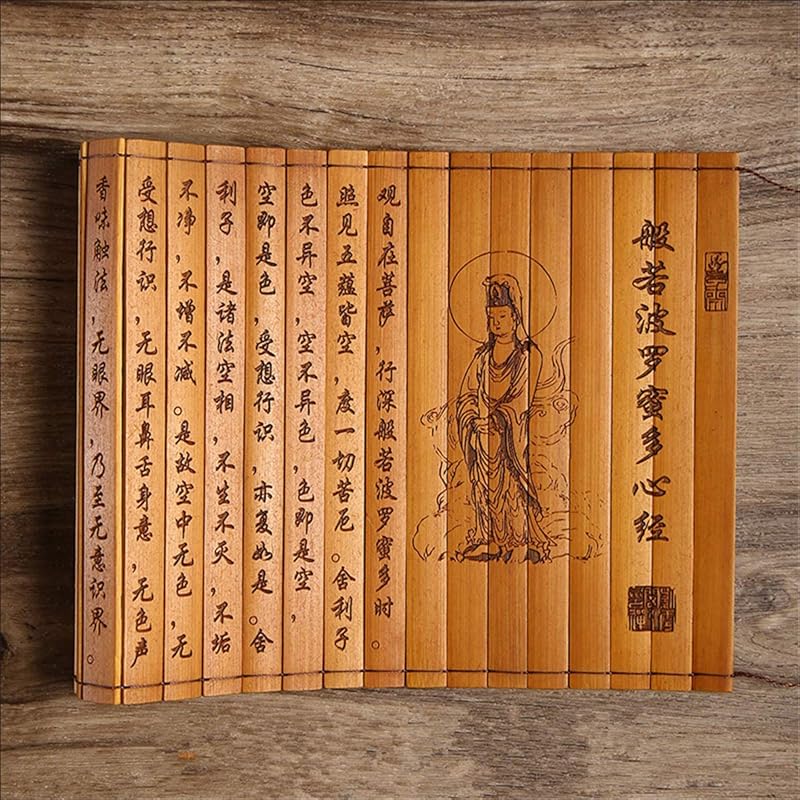 般若波罗蜜多心经
观自在菩萨，行深般若波罗蜜多时。
照见五蕴皆空，度一切苦厄。舍利子
色不异空，空不异色，色即是空，
空即是色，受想行识，亦复如是。舍
利子，是诸法空相，不生不灭，不垢
不净，不增不减。是故空中无色，无
受想行识，无眼耳鼻舌身意，无色声
香味触法，无眼界，乃至无意识界。